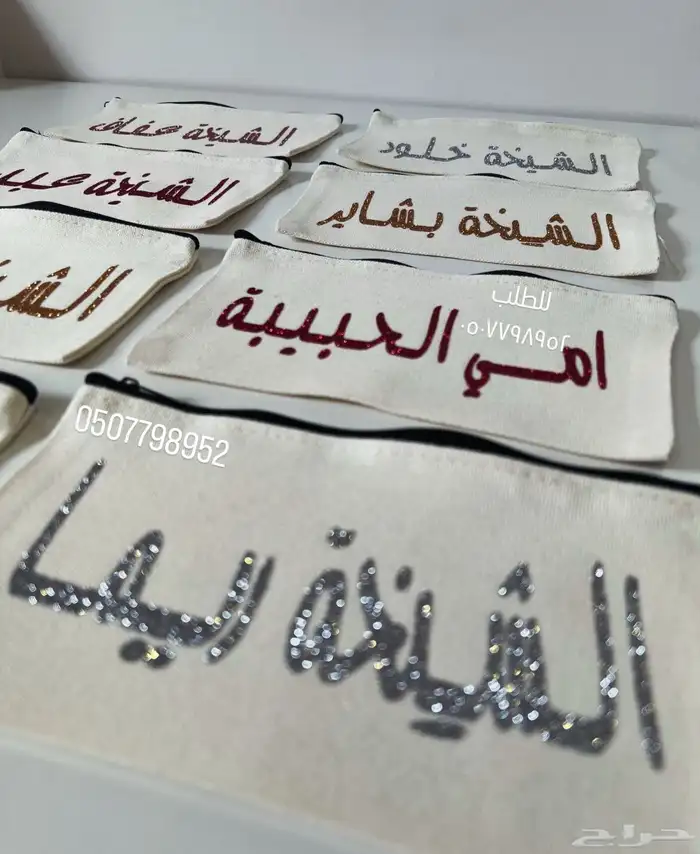 الشيخة عفاف
الشيخة خلود
الشيخة
الشيخة بشاير
للطلب
٠٥٠٧٧٩٨٩٥٢
امي الحبيبة
0507798952
الشيخة ريما
حراج